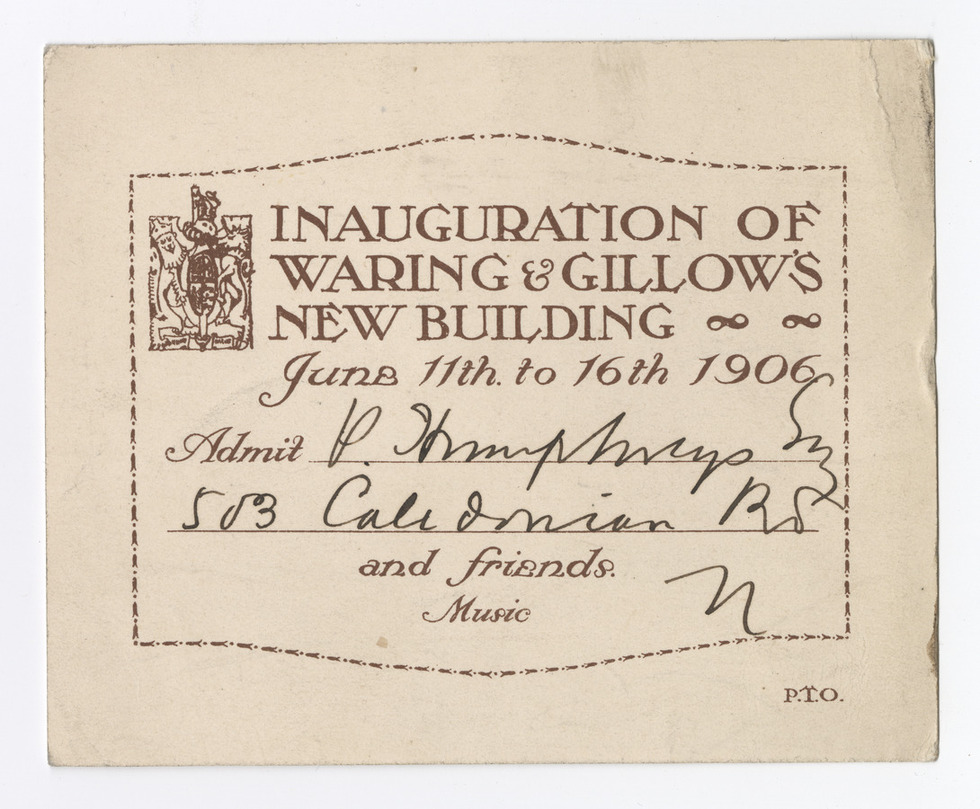 INAUGURATION OF
WARING & GILLOW'S
NEW BUILDING
June 11th. to 16th 1906
Admit P. Humphreys Esq
503 Caledonian Rd
and friends.
N
Music
P.T.O.